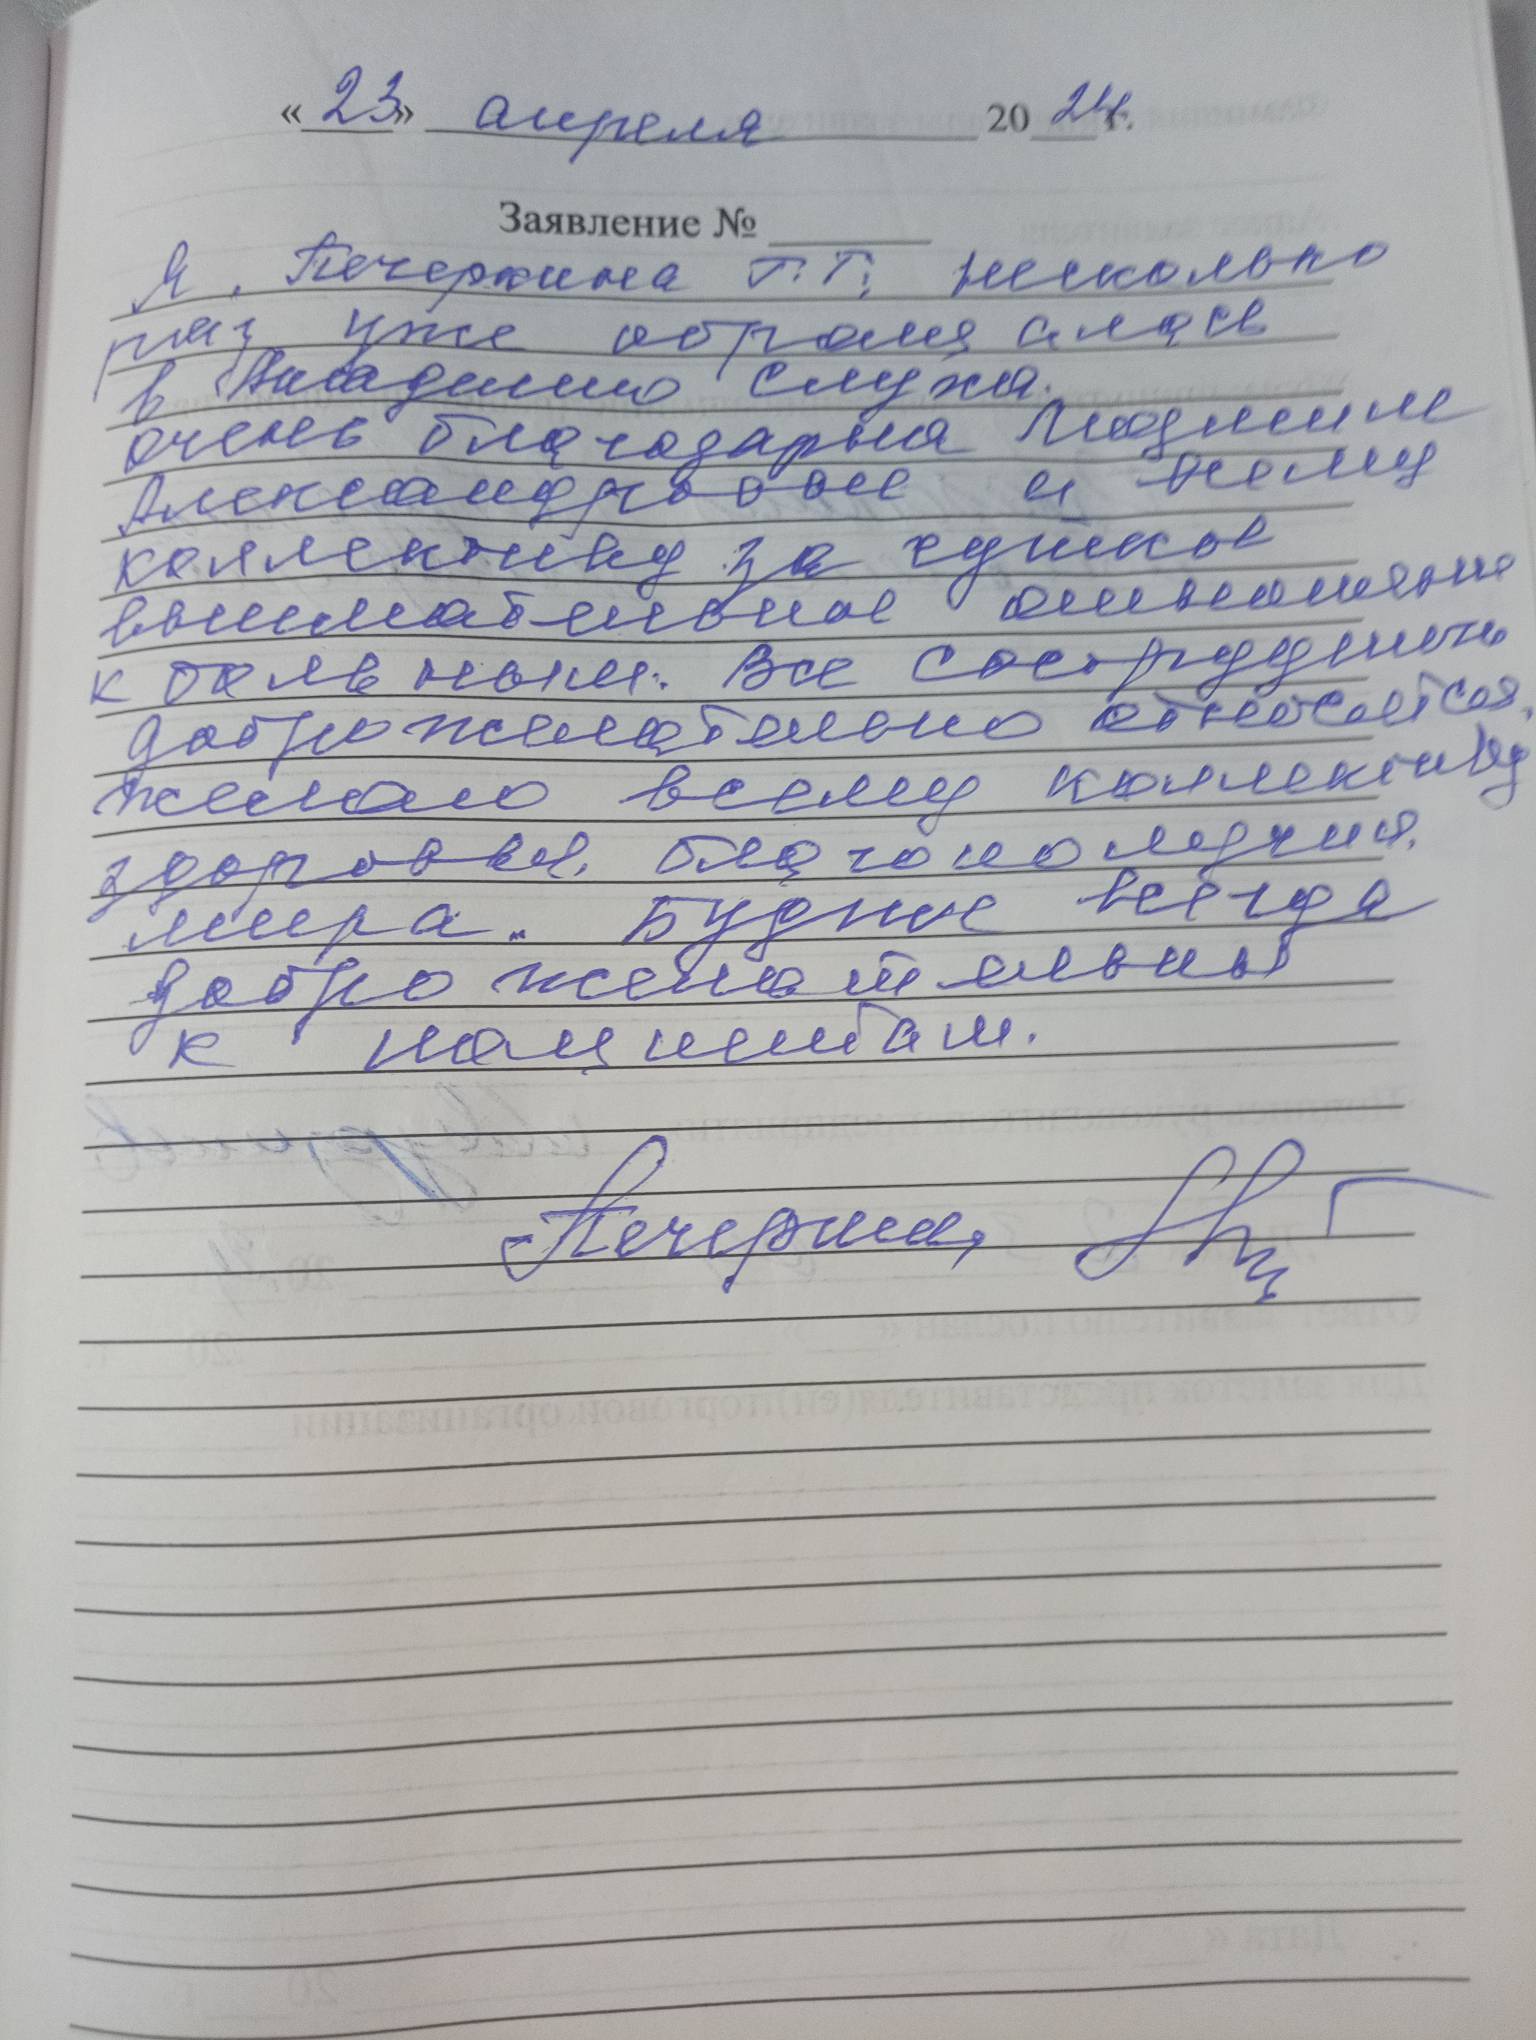 «23» апреля 2024г.
Заявление №
Я, Печеркина Т.Т, несколько
раз уже обращалась
в Академию слуха.
очень благодарна Людмиле
Александровне и всему
коллективу за чуткое
внимательное отношение
к больным. Все сотрудники
доброжелательно относятся.
желаю всему коллективу
здоровья, благополучия,
мира. Будьте всегда
доброжелательны
к пациентам.
Печеркина,